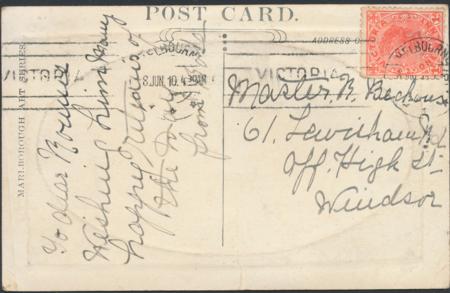 POST CARD.
MARLBOROUGH ART SERIES.
ADDRESS
MELBOURNE
8 JUN 10
VICTORIA
VICTORIA
MELBOURNE
To dear
Wishing him many
happy returns of
the
from
Master B.
61 Lewisham Rd
Off. High St.
Windsor